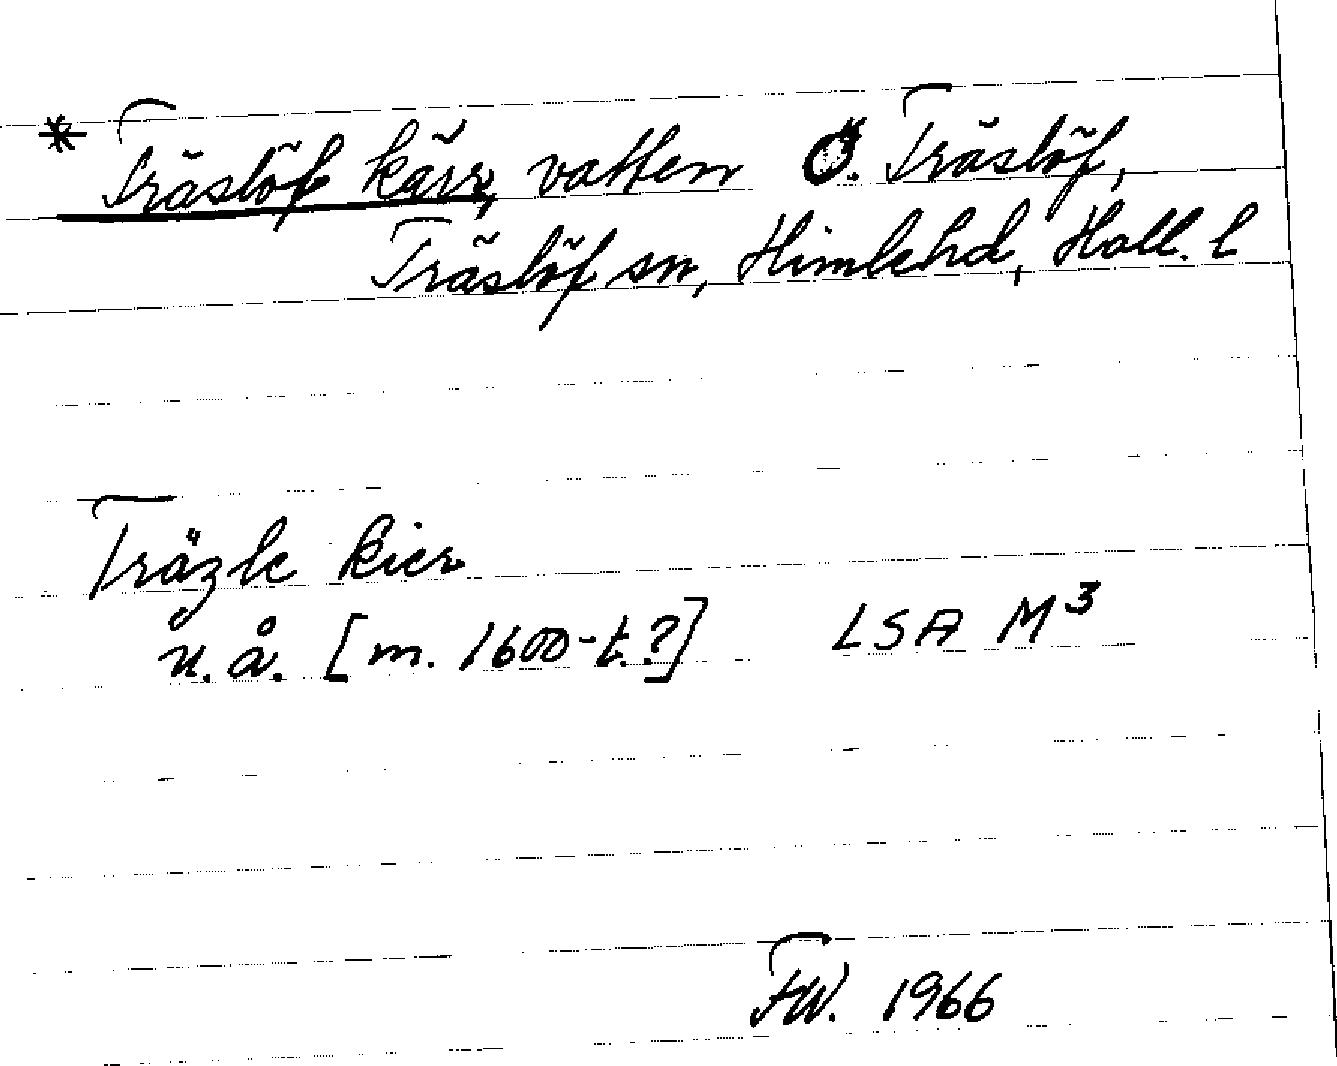 * Träslöf kärr, vatten Ö. Träslöf,
Träslöf sn, Himlehd, Hall. l
Träzle kier
u.å. [m. 1600-t.?] LSA M³
FW. 1966